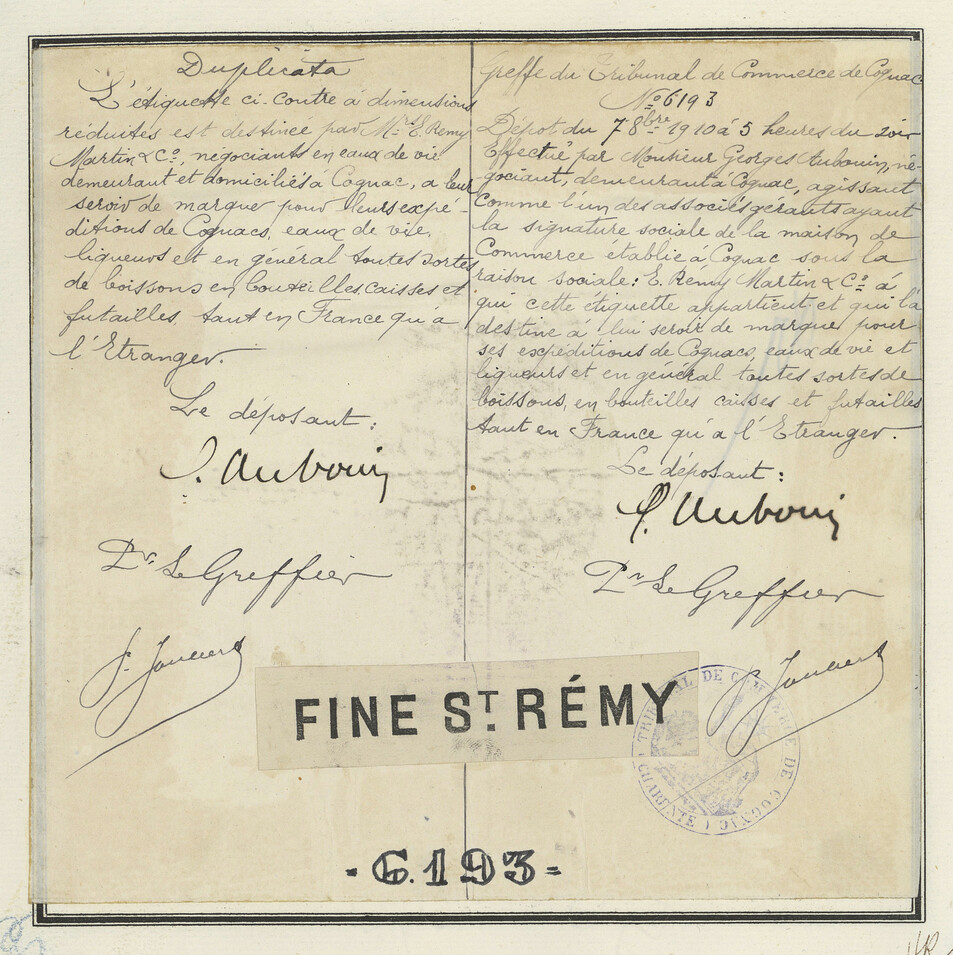 Duplicata
L'étiquette ci-contre à dimensions
réduites est destinée par Mrs E. Remy
Martin & Co, négociants en eaux de vie
demeurant et domiciliés à Cognac, a leur
servir de marque pour leurs expé-
ditions de Cognacs, eaux de vie,
liqueurs et en général toutes sortes
de boissons en bouteilles, caisses et
futailles, tant en France qu'a
l'Etranger.
Le déposant :
G. Aubouin
Pr. Le Greffier
Greffe du Tribunal de Commerce de Cognac
No 6193
Dépot du 7 8bre 1910 à 5 heures du soir
Effectué par Monsieur Georges Aubouin, né-
gociant, demeurant à Cognac, agissant
comme l'un des associés gérants ayant
la signature sociale de la maison de
Commerce établie à Cognac sous la
raison sociale : E. Rémy Martin & Co à
qui cette étiquette appartient et qui la
destine à lui servir de marque pour
ses expéditions de Cognacs, eaux de vie et
liqueurs et en général toutes sortes de
boissons, en bouteilles caisses et futailles
tant en France qu'a l'Etranger.
Le déposant :
G. Aubouin
Pr Le Greffier
FINE ST. RÉMY
TRIBUNAL DE COMMERCE DE COGNAC (CHARENTE)
-6.193=